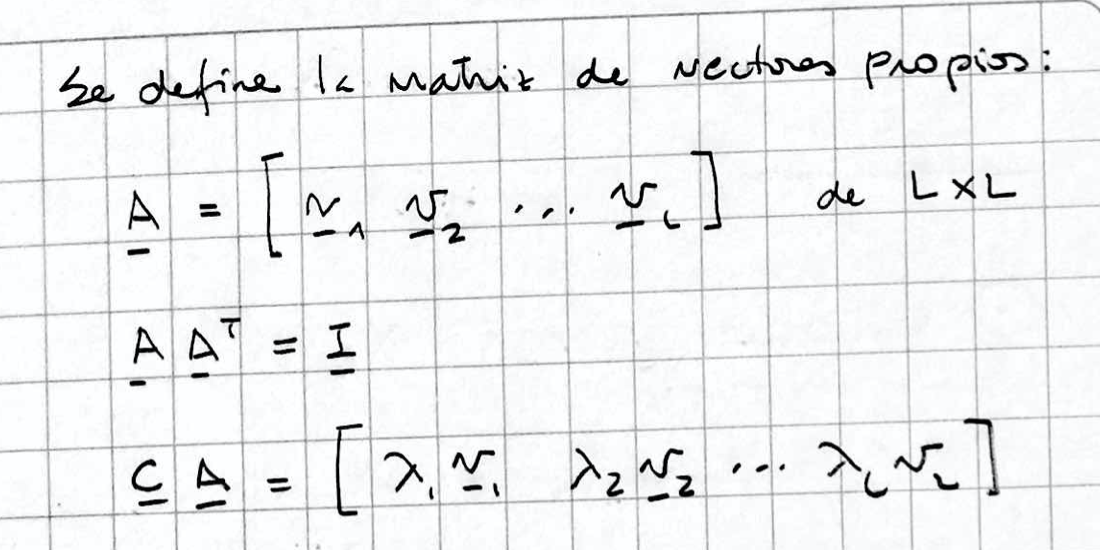 Se define la matriz de vectores propios:
A = [ v₁ v₂ ... v_L ] de L×L
A Aᵀ = I
C A = [ λ₁ v₁ λ₂ v₂ ... λ_L v_L ]